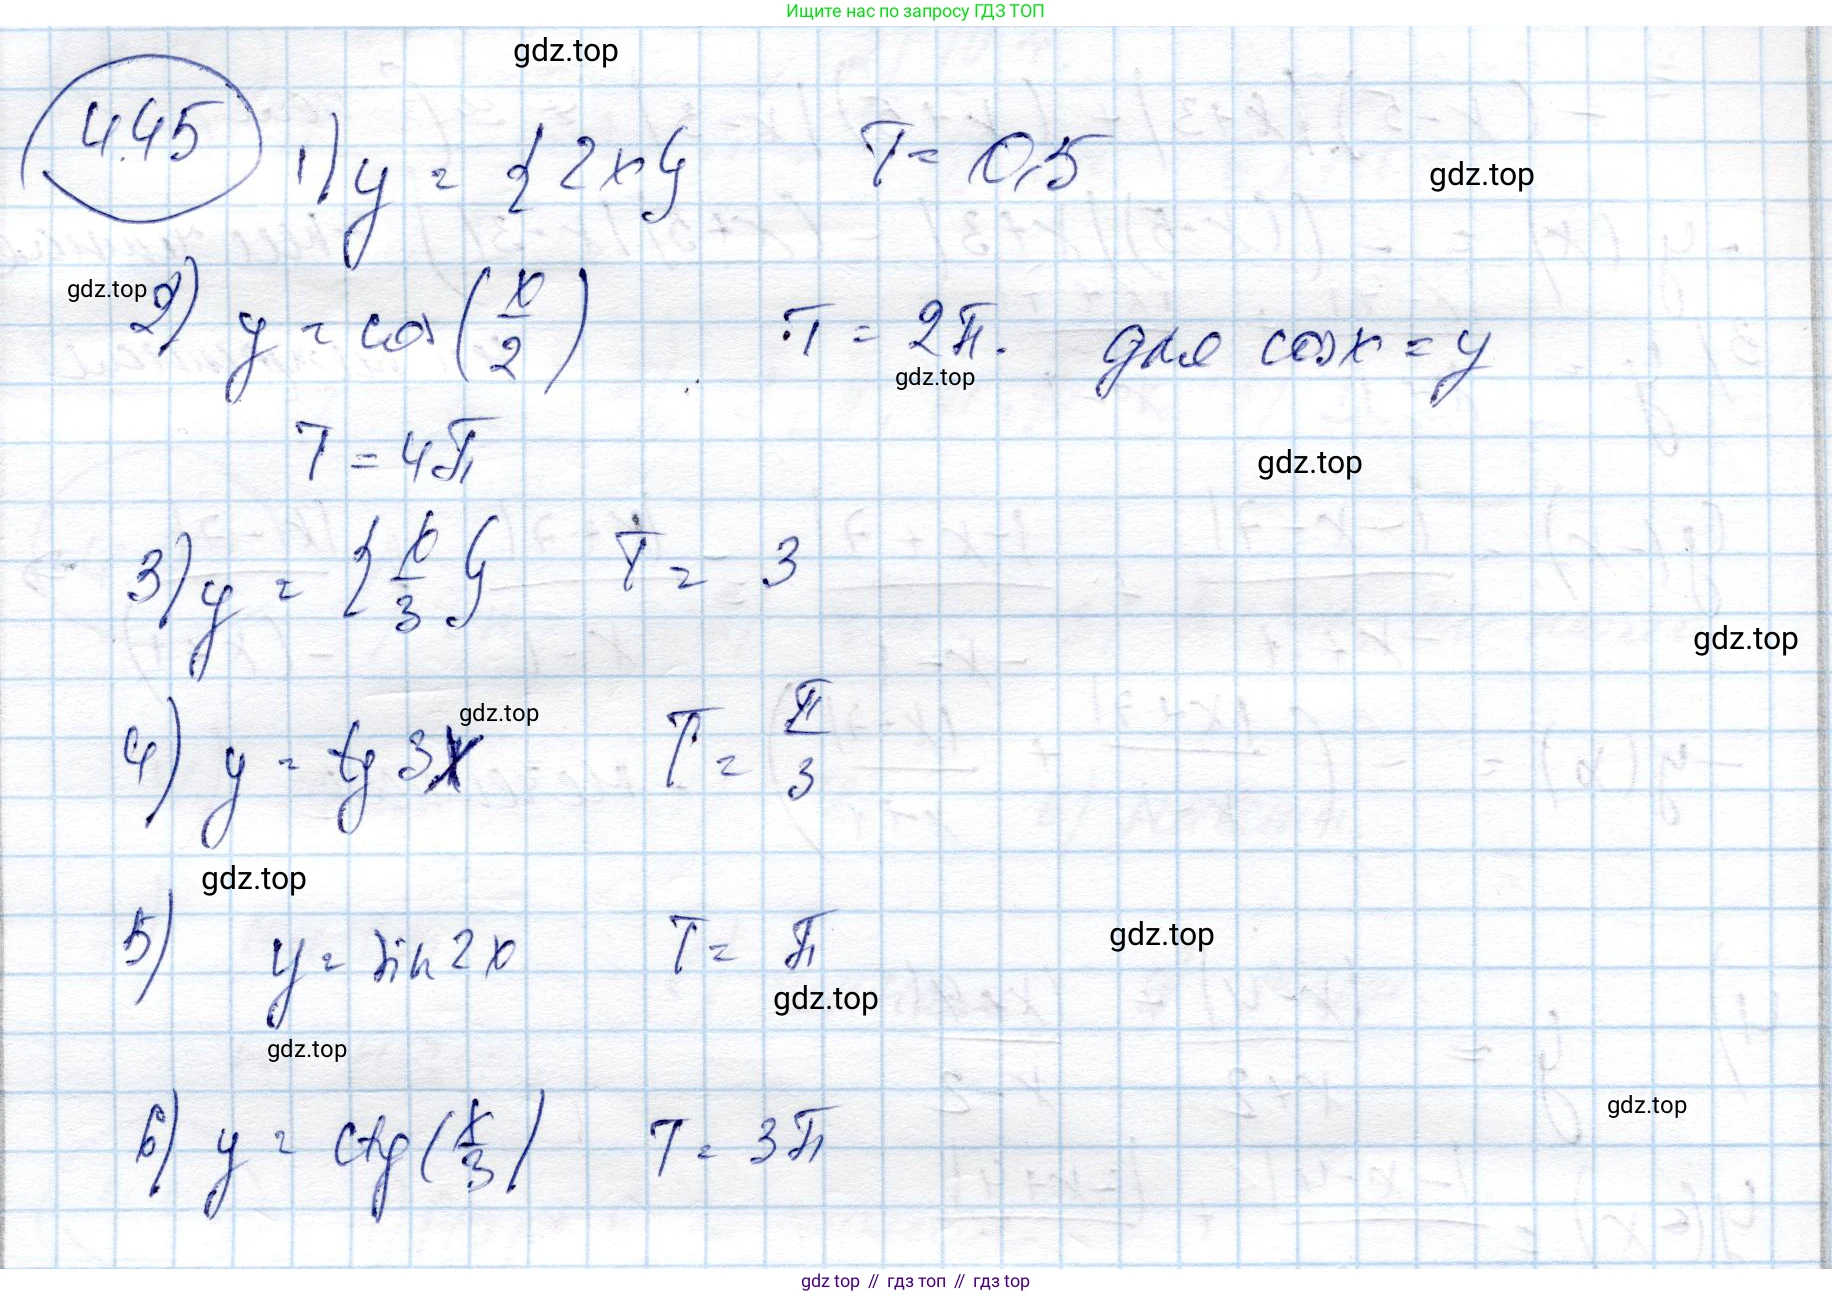 Ищите нас по запросу ГДЗ ТОП
gdz.top
4.45
1) y = {2x} T = 0,5
gdz.top
gdz.top
2) y = cos(x/2) T = 2π. для cosx = y
gdz.top
T = 4π
gdz.top
3) y = {x/3} T = 3
gdz.top
gdz.top
4) y = tg 3x T = π/3
gdz.top
5) y = sin 2x T = π
gdz.top
gdz.top
gdz.top
gdz.top
6) y = ctg(x/3) T = 3π
gdz top // гдз топ // гдз top